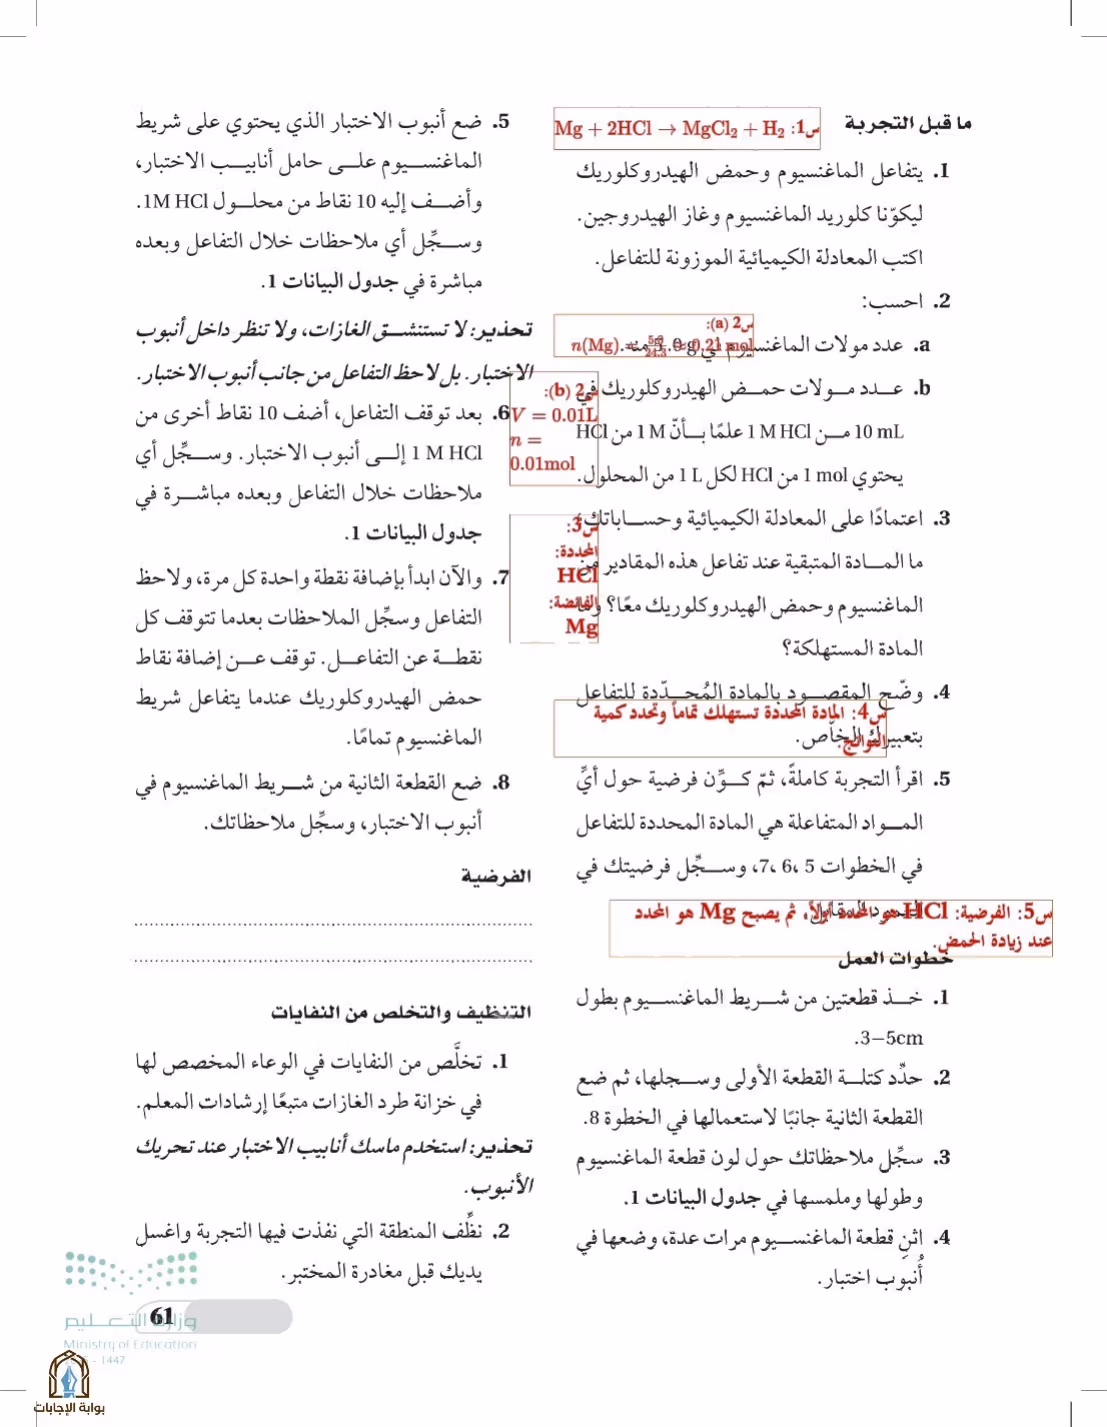 ما قبل التجربة
س1: Mg + 2HCl → MgCl₂ + H₂
1. يتفاعل الماغنسيوم وحمض الهيدروكلوريك
ليكوّنا كلوريد الماغنسيوم وغاز الهيدروجين.
اكتب المعادلة الكيميائية الموزونة للتفاعل.
2. احسب:
س2 (a):
a. عدد مولات الماغنسيوم في 5.0 g منه.
n(Mg) = 5.0/24.3 = 0.21 mol
س2 (b):
V = 0.01L
n =
0.01mol
b. عدد مولات حمض الهيدروكلوريك في
10 mL من 1 M HCl علمًا بأنّ 1 M من HCl
يحتوي 1 mol من HCl لكل 1 L من المحلول.
3. اعتمادًا على المعادلة الكيميائية وحساباتك؛
ما المادة المتبقية عند تفاعل هذه المقادير من
الماغنسيوم وحمض الهيدروكلوريك معًا؟ وما
المادة المستهلكة؟
س3:
المحددة:
HCl
الفائضة:
Mg
4. وضّح المقصود بالمادة المُحدّدة للتفاعل
بتعبيرك الخاص.
س4: المادة المحددة تستهلك تماماً وتحدد كمية
النواتج.
5. اقرأ التجربة كاملةً، ثمّ كوِّن فرضية حول أيِّ
المواد المتفاعلة هي المادة المحددة للتفاعل
في الخطوات 5 ،6 ،7، وسجِّل فرضيتك في
س5: الفرضية: HCl هو المحدد أولاً، ثم يصبح Mg هو المحدد
عند زيادة الحمض.
خطوات العمل
1. خذ قطعتين من شريط الماغنسيوم بطول
3–5cm.
2. حدِّد كتلة القطعة الأولى وسجلها، ثم ضع
القطعة الثانية جانبًا لاستعمالها في الخطوة 8.
3. سجِّل ملاحظاتك حول لون قطعة الماغنسيوم
وطولها وملمسها في جدول البيانات 1.
4. اثنِ قطعة الماغنسيوم مرات عدة، وضعها في
أُنبوب اختبار.
5. ضع أنبوب الاختبار الذي يحتوي على شريط
الماغنسيوم على حامل أنابيب الاختبار،
وأضف إليه 10 نقاط من محلول 1M HCl.
وسجِّل أي ملاحظات خلال التفاعل وبعده
مباشرة في جدول البيانات 1.
تحذير: لا تستنشق الغازات، ولا تنظر داخل أنبوب
الاختبار. بل لاحظ التفاعل من جانب أنبوب الاختبار.
6. بعد توقف التفاعل، أضف 10 نقاط أخرى من
1 M HCl إلى أنبوب الاختبار. وسجِّل أي
ملاحظات خلال التفاعل وبعده مباشرة في
جدول البيانات 1.
7. والآن ابدأ بإضافة نقطة واحدة كل مرة، ولاحظ
التفاعل وسجِّل الملاحظات بعدما تتوقف كل
نقطة عن التفاعل. توقف عن إضافة نقاط
حمض الهيدروكلوريك عندما يتفاعل شريط
الماغنسيوم تمامًا.
8. ضع القطعة الثانية من شريط الماغنسيوم في
أنبوب الاختبار، وسجِّل ملاحظاتك.
الفرضية
التنظيف والتخلص من النفايات
1. تخلَّص من النفايات في الوعاء المخصص لها
في خزانة طرد الغازات متبعًا إرشادات المعلم.
تحذير: استخدم ماسك أنابيب الاختبار عند تحريك
الأنبوب.
2. نظِّف المنطقة التي نفذت فيها التجربة واغسل
يديك قبل مغادرة المختبر.
61
وزارة التعليم
Ministry of Education
- 1447
بوابة الإجابات